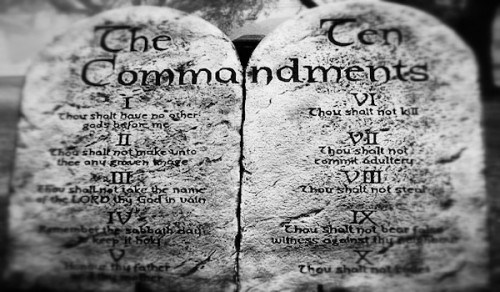 The Ten
Commandments
I
Thou shalt have no other
gods before me
II
Thou shalt not make unto
thee any graven image
III
Thou shall not take the name
of the LORD thy God in vain
IV
Remember the sabbath day
to keep it holy
V
Honour thy father
VI
Thou shalt not kill
VII
Thou shalt not
commit adultery
VIII
Thou shalt not steal
IX
Thou shalt not bear false
witness against thy neighbour
X
Thou shalt not covet